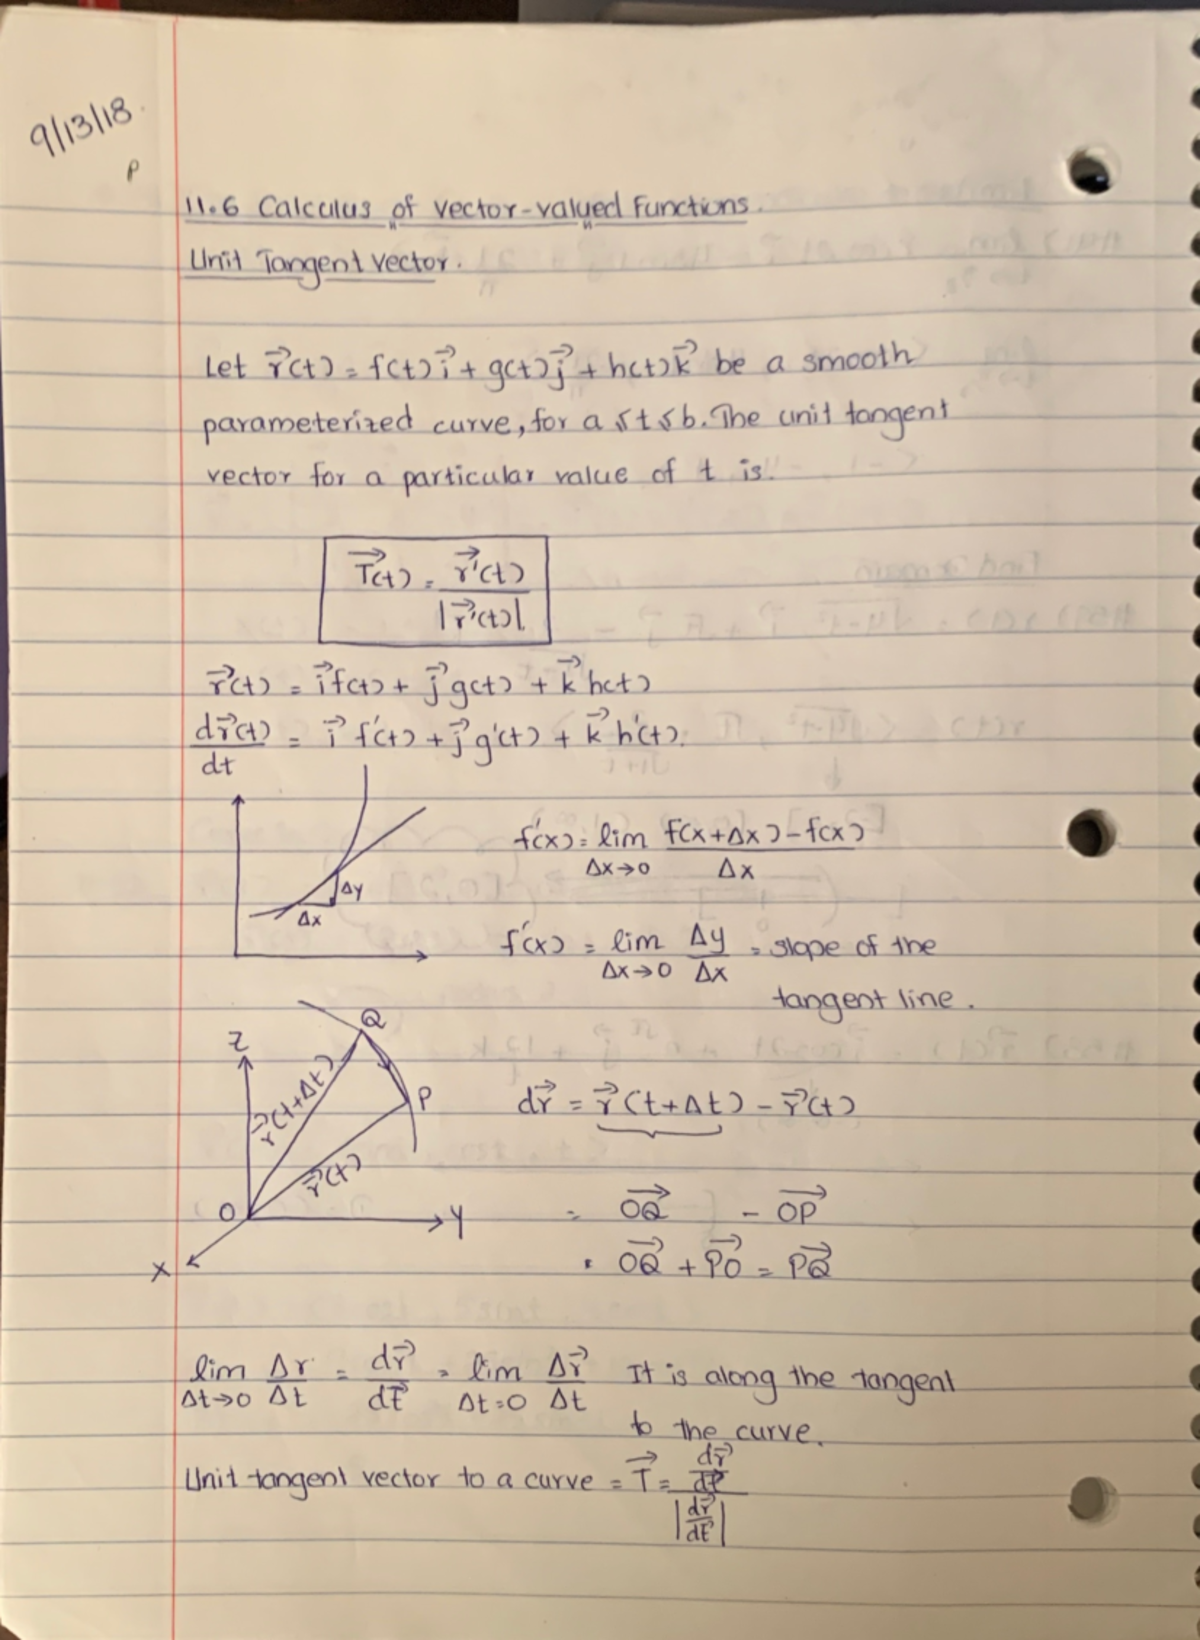 9/13/18.
P
11.6 Calculus of vector-valued Functions.
Unit Tangent vector.
Let r⃗(t) = f(t)i⃗ + g(t)j⃗ + h(t)k⃗ be a smooth
parameterized curve, for a ≤ t ≤ b. The unit tangent
vector for a particular value of t is.
T⃗(t) = r⃗'(t) / |r⃗'(t)|
r⃗(t) = i⃗ f(t) + j⃗ g(t) + k⃗ h(t)
dr⃗(t)/dt = i⃗ f'(t) + j⃗ g'(t) + k⃗ h'(t).
f'(x) = lim Δx→0 f(x+Δx) - f(x) / Δx
Δy
Δx
f'(x) = lim Δx→0 Δy/Δx = slope of the
tangent line.
Q
Z
P
r⃗(t+Δt)
r⃗(t)
O
Y
X
dr⃗ = r⃗(t+Δt) - r⃗(t)
= OQ⃗ - OP⃗
= OQ⃗ + PO⃗ = PQ⃗
lim Δt→0 Δr/Δt = dr⃗/dt⃗ = lim Δt=0 Δr⃗/Δt It is along the tangent
to the curve.
Unit tangent vector to a curve = T⃗ = dr⃗/dt⃗ / |dr⃗/dt⃗|